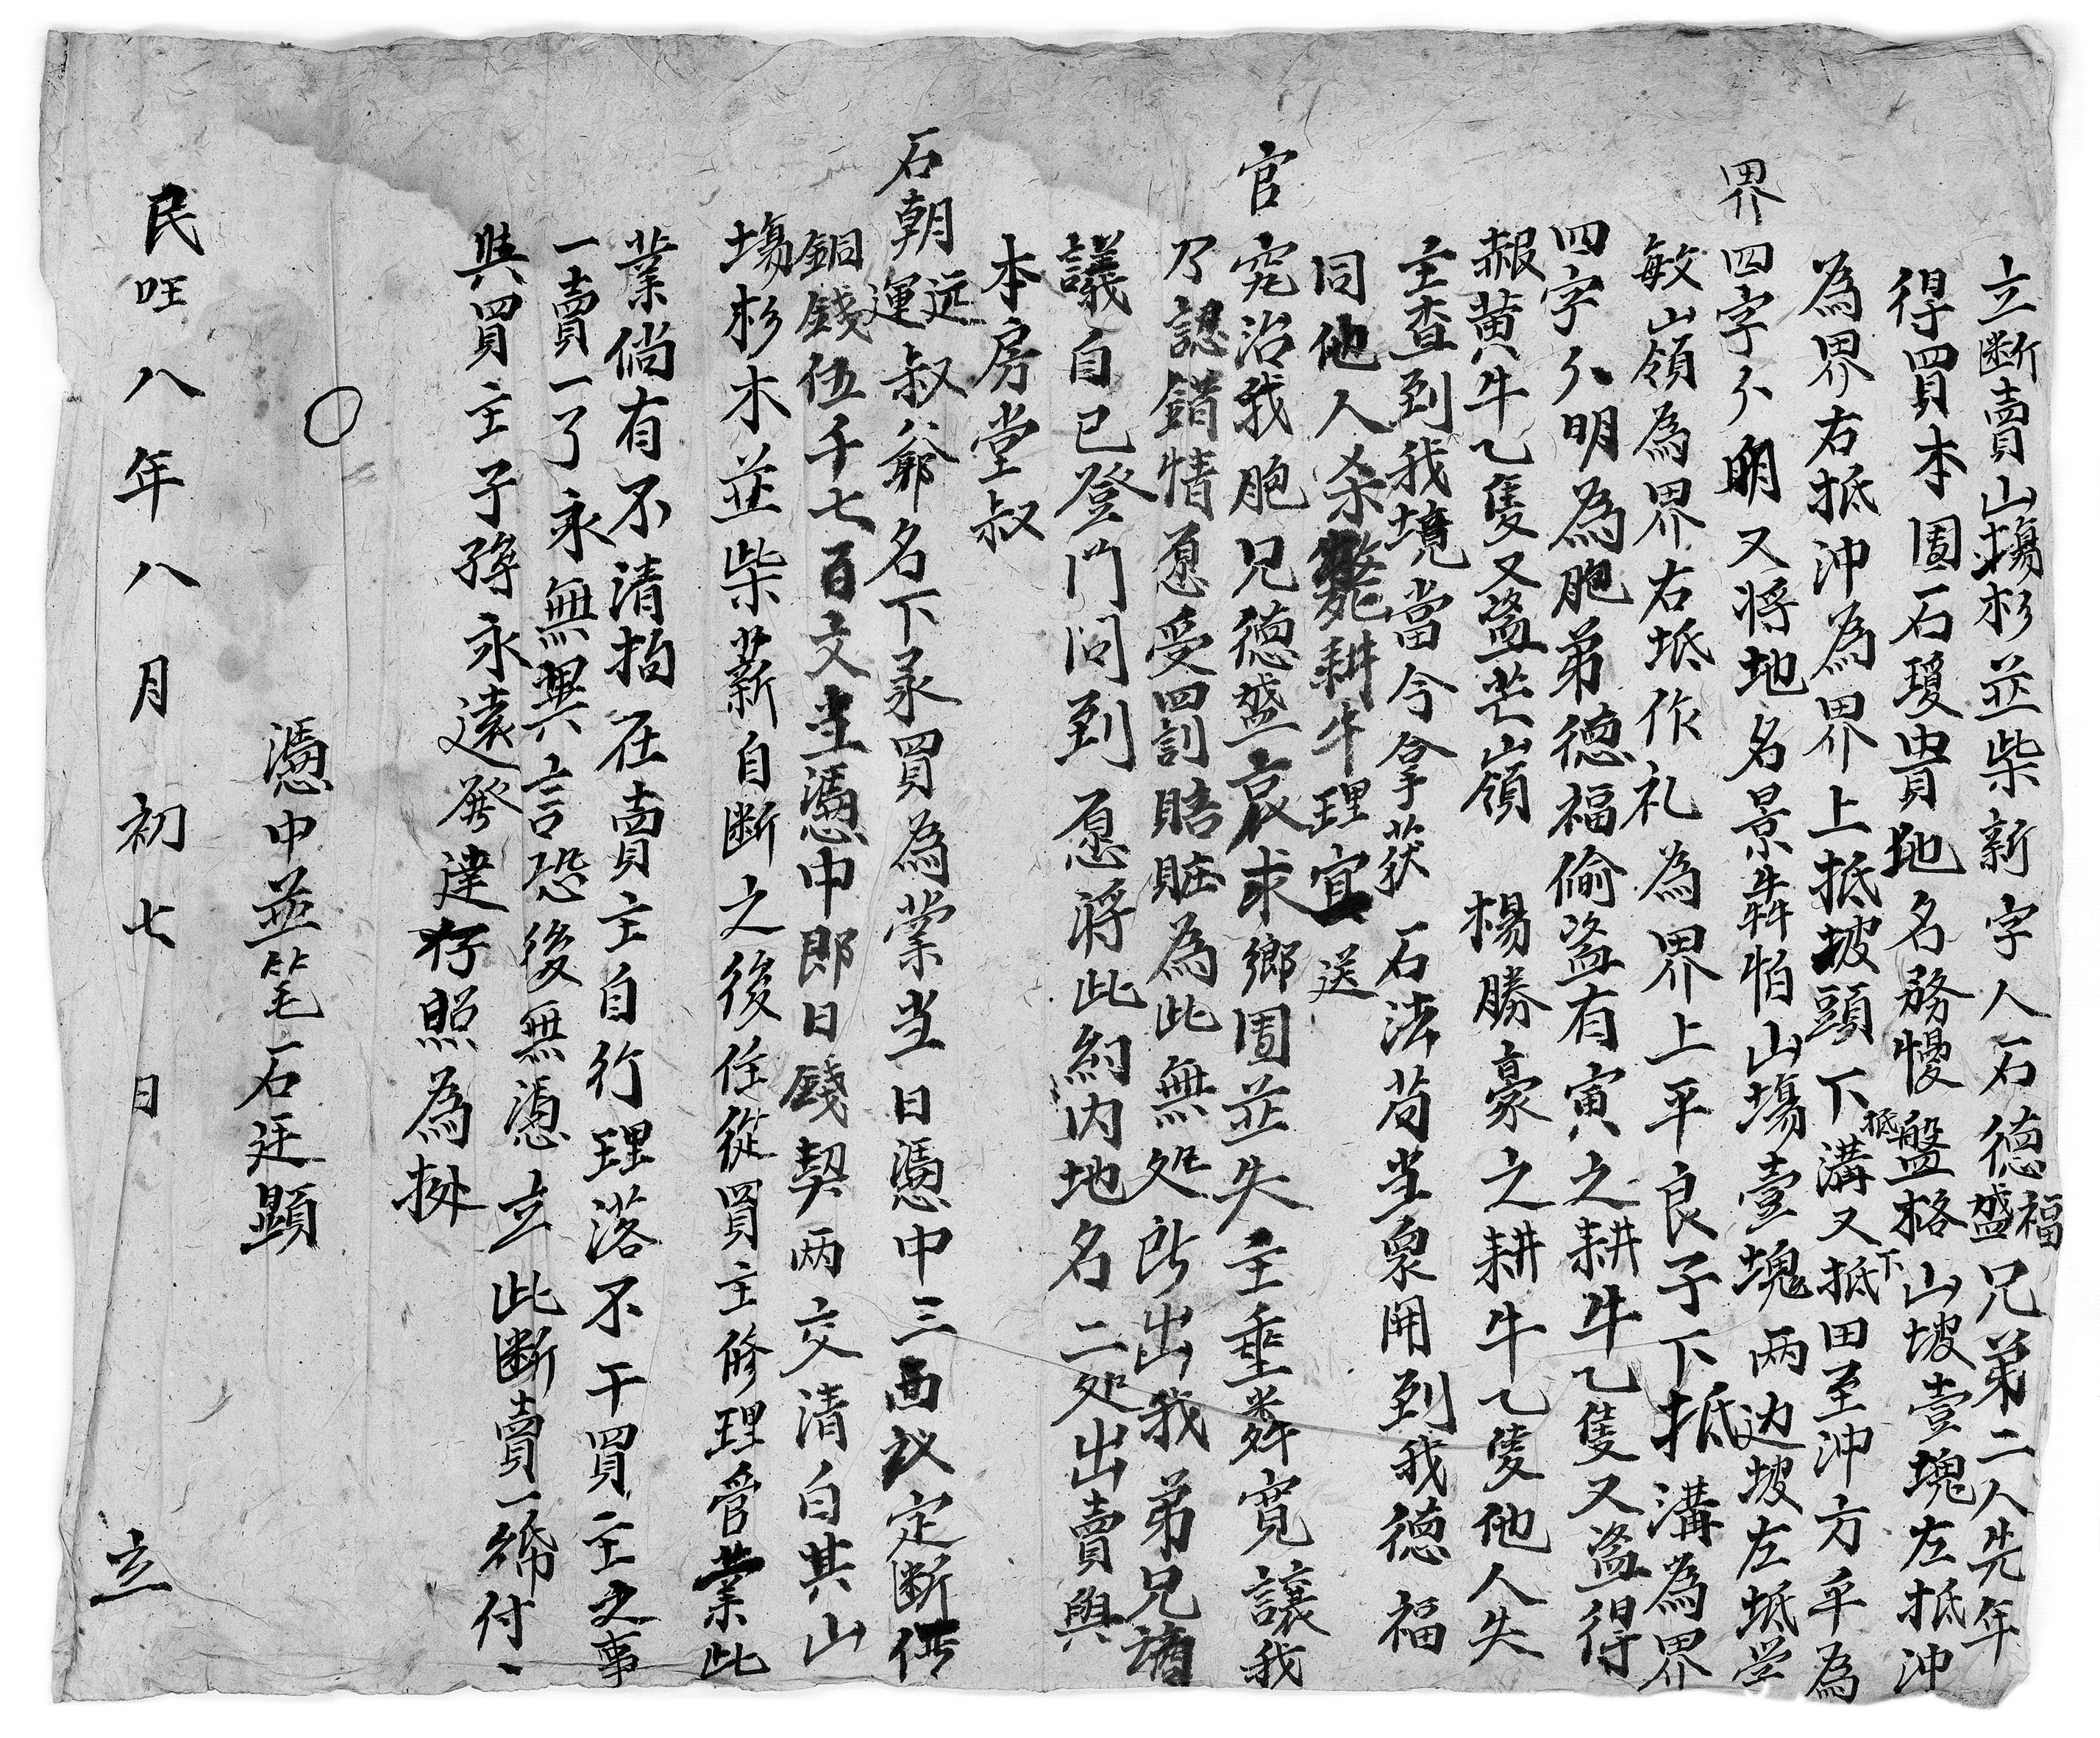 立断賣山塲杉並柴新字人石德福盛兄弟二人先年
得買本團石瓊貴地名務慢盤格山坡壹塊左抵沖
為界右抵沖為界上抵坡頭下抵溝又抵下田至沖方平為
界四字分明又将地名景犇怕山塲壹塊两边坡左坻
敏山領為界右坻作礼為界上平良子下抵溝為界
四字分明為胞弟德福偷盗有寅之耕牛乙隻又盗得
赧黄牛乙隻又盗芒嶺楊勝豪之耕牛乙隻他人失
主查到我境當今拿获石法苟当衆開到我德福
同他人杀斃耕牛理宜送
官究治我胞兄德盛哀求鄉團並失主垂寬讓我
乃認錯情愿受罰賠賍為此無処所出我弟兄謪
議自已登門問到愿将此約内地名二処出賣與
本房堂叔
石朝远運叔爺名下承買為業当日憑中三面议定断價
銅錢伍千七百文当憑中即日錢契两交清白其山
塲杉木並柴薪自断之後任從買主修理管業此
業倘有不清拍在賣主自行理落不干買主之事
一賣一了永無異言恐後無憑立此断賣一紙付
與買主子孫永遠發達存照為㨿
憑中並笔石廷顕
民囯八年八月初七日立